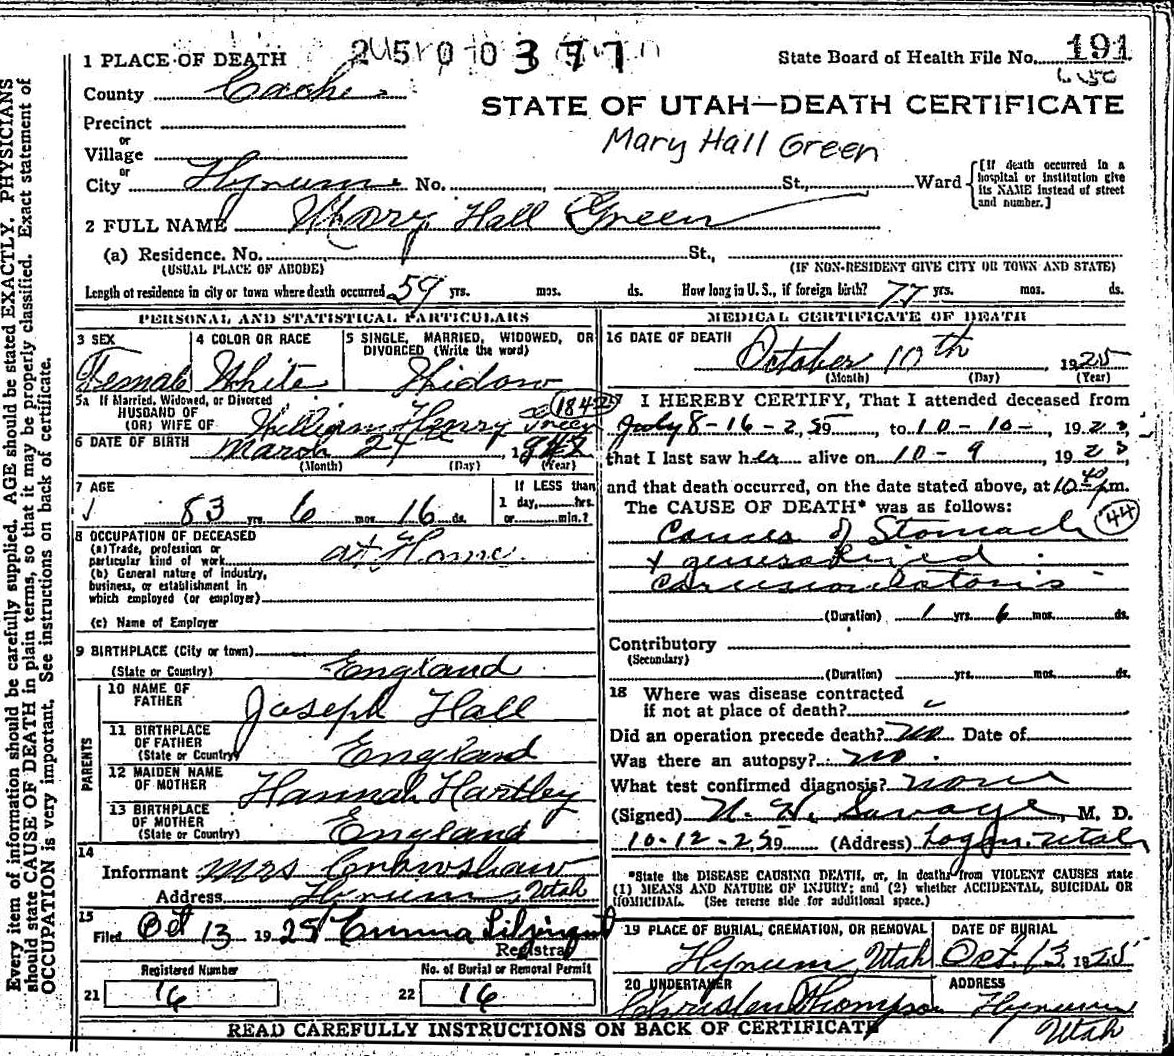 Every item of information should be carefully supplied. AGE should be stated EXACTLY. PHYSICIANS
should state CAUSE OF DEATH in plain terms, so that it may be properly classified. Exact statement of
OCCUPATION is very important. See instructions on back of certificate.
1 PLACE OF DEATH
State Board of Health File No. 191
County Cache
STATE OF UTAH—DEATH CERTIFICATE
Precinct
or
Village
Mary Hall Green
or
City Hyrum No. St., Ward
[If death occurred in a
hospital or institution give
its NAME instead of street
and number.]
2 FULL NAME Mary Hall Green
(a) Residence. No. St.,
(USUAL PLACE OF ABODE) (IF NON-RESIDENT GIVE CITY OR TOWN AND STATE)
Length of residence in city or town where death occurred 59 yrs. mos. ds. How long in U. S., if foreign birth? 77 yrs. mos. ds.
PERSONAL AND STATISTICAL PARTICULARS
3 SEX
Female
4 COLOR OR RACE
White
5 SINGLE, MARRIED, WIDOWED, OR
DIVORCED (Write the word)
Widow
5a If Married, Widowed, or Divorced
HUSBAND OF
(OR) WIFE OF William Henry Green
1842
6 DATE OF BIRTH March 24
(Month) (Day) (Year)
7 AGE
83 yrs. 6 mos. 16 ds.
If LESS than
1 day, hrs.
or min.?
8 OCCUPATION OF DECEASED
(a) Trade, profession or
particular kind of work at Home
(b) General nature of industry,
business, or establishment in
which employed (or employer)
(c) Name of Employer
9 BIRTHPLACE (City or town)
(State or Country) England
PARENTS
10 NAME OF
FATHER Joseph Hall
11 BIRTHPLACE
OF FATHER
(State or Country) England
12 MAIDEN NAME
OF MOTHER Hannah Hartley
13 BIRTHPLACE
OF MOTHER
(State or Country) England
14
Informant Mrs Crowshaw
Address Hyrum, Utah
15
Filed Oct 13 1925 Emma Liljenquist
Registrar
Registered Number
21 16
No. of Burial or Removal Permit
22 16
MEDICAL CERTIFICATE OF DEATH
16 DATE OF DEATH
October 10th 1925
(Month) (Day) (Year)
17 I HEREBY CERTIFY, That I attended deceased from
July 8-16-25, 19 to 10-10-, 192
that I last saw her alive on 10-9, 192
and that death occurred, on the date stated above, at 10 40 pm.
The CAUSE OF DEATH* was as follows:
Cancer of Stomach 44
+ generalized
carcinomatosis
(Duration) 1 yrs. 6 mos. ds.
Contributory
(Secondary)
(Duration) yrs. mos. ds.
18 Where was disease contracted
if not at place of death?
Did an operation precede death? no Date of
Was there an autopsy? no
What test confirmed diagnosis? none
(Signed) Savage, M. D.
10-12-25, 19 (Address) Logan, Utah
*State the DISEASE CAUSING DEATH, or, in deaths from VIOLENT CAUSES state
(1) MEANS AND NATURE OF INJURY; and (2) whether ACCIDENTAL, SUICIDAL OR
HOMICIDAL. (See reverse side for additional space.)
19 PLACE OF BURIAL, CREMATION, OR REMOVAL
Hyrum, Utah
DATE OF BURIAL
Oct. 13 1925
20 UNDERTAKER
Thompson
ADDRESS
Hyrum
Utah
READ CAREFULLY INSTRUCTIONS ON BACK OF CERTIFICATE